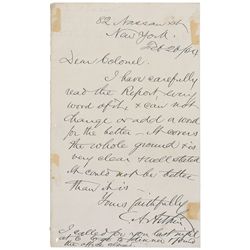 82 Nassau St
New York.
Dear Colonel.
I have carefully
read the Report every
word of it & can not
change or add a word
for the better - It covers
the whole ground is
very clear & well stated
It could not be better
than it is -
Yours faithfully
I called for you last night
at 6 to go to dinner
the other